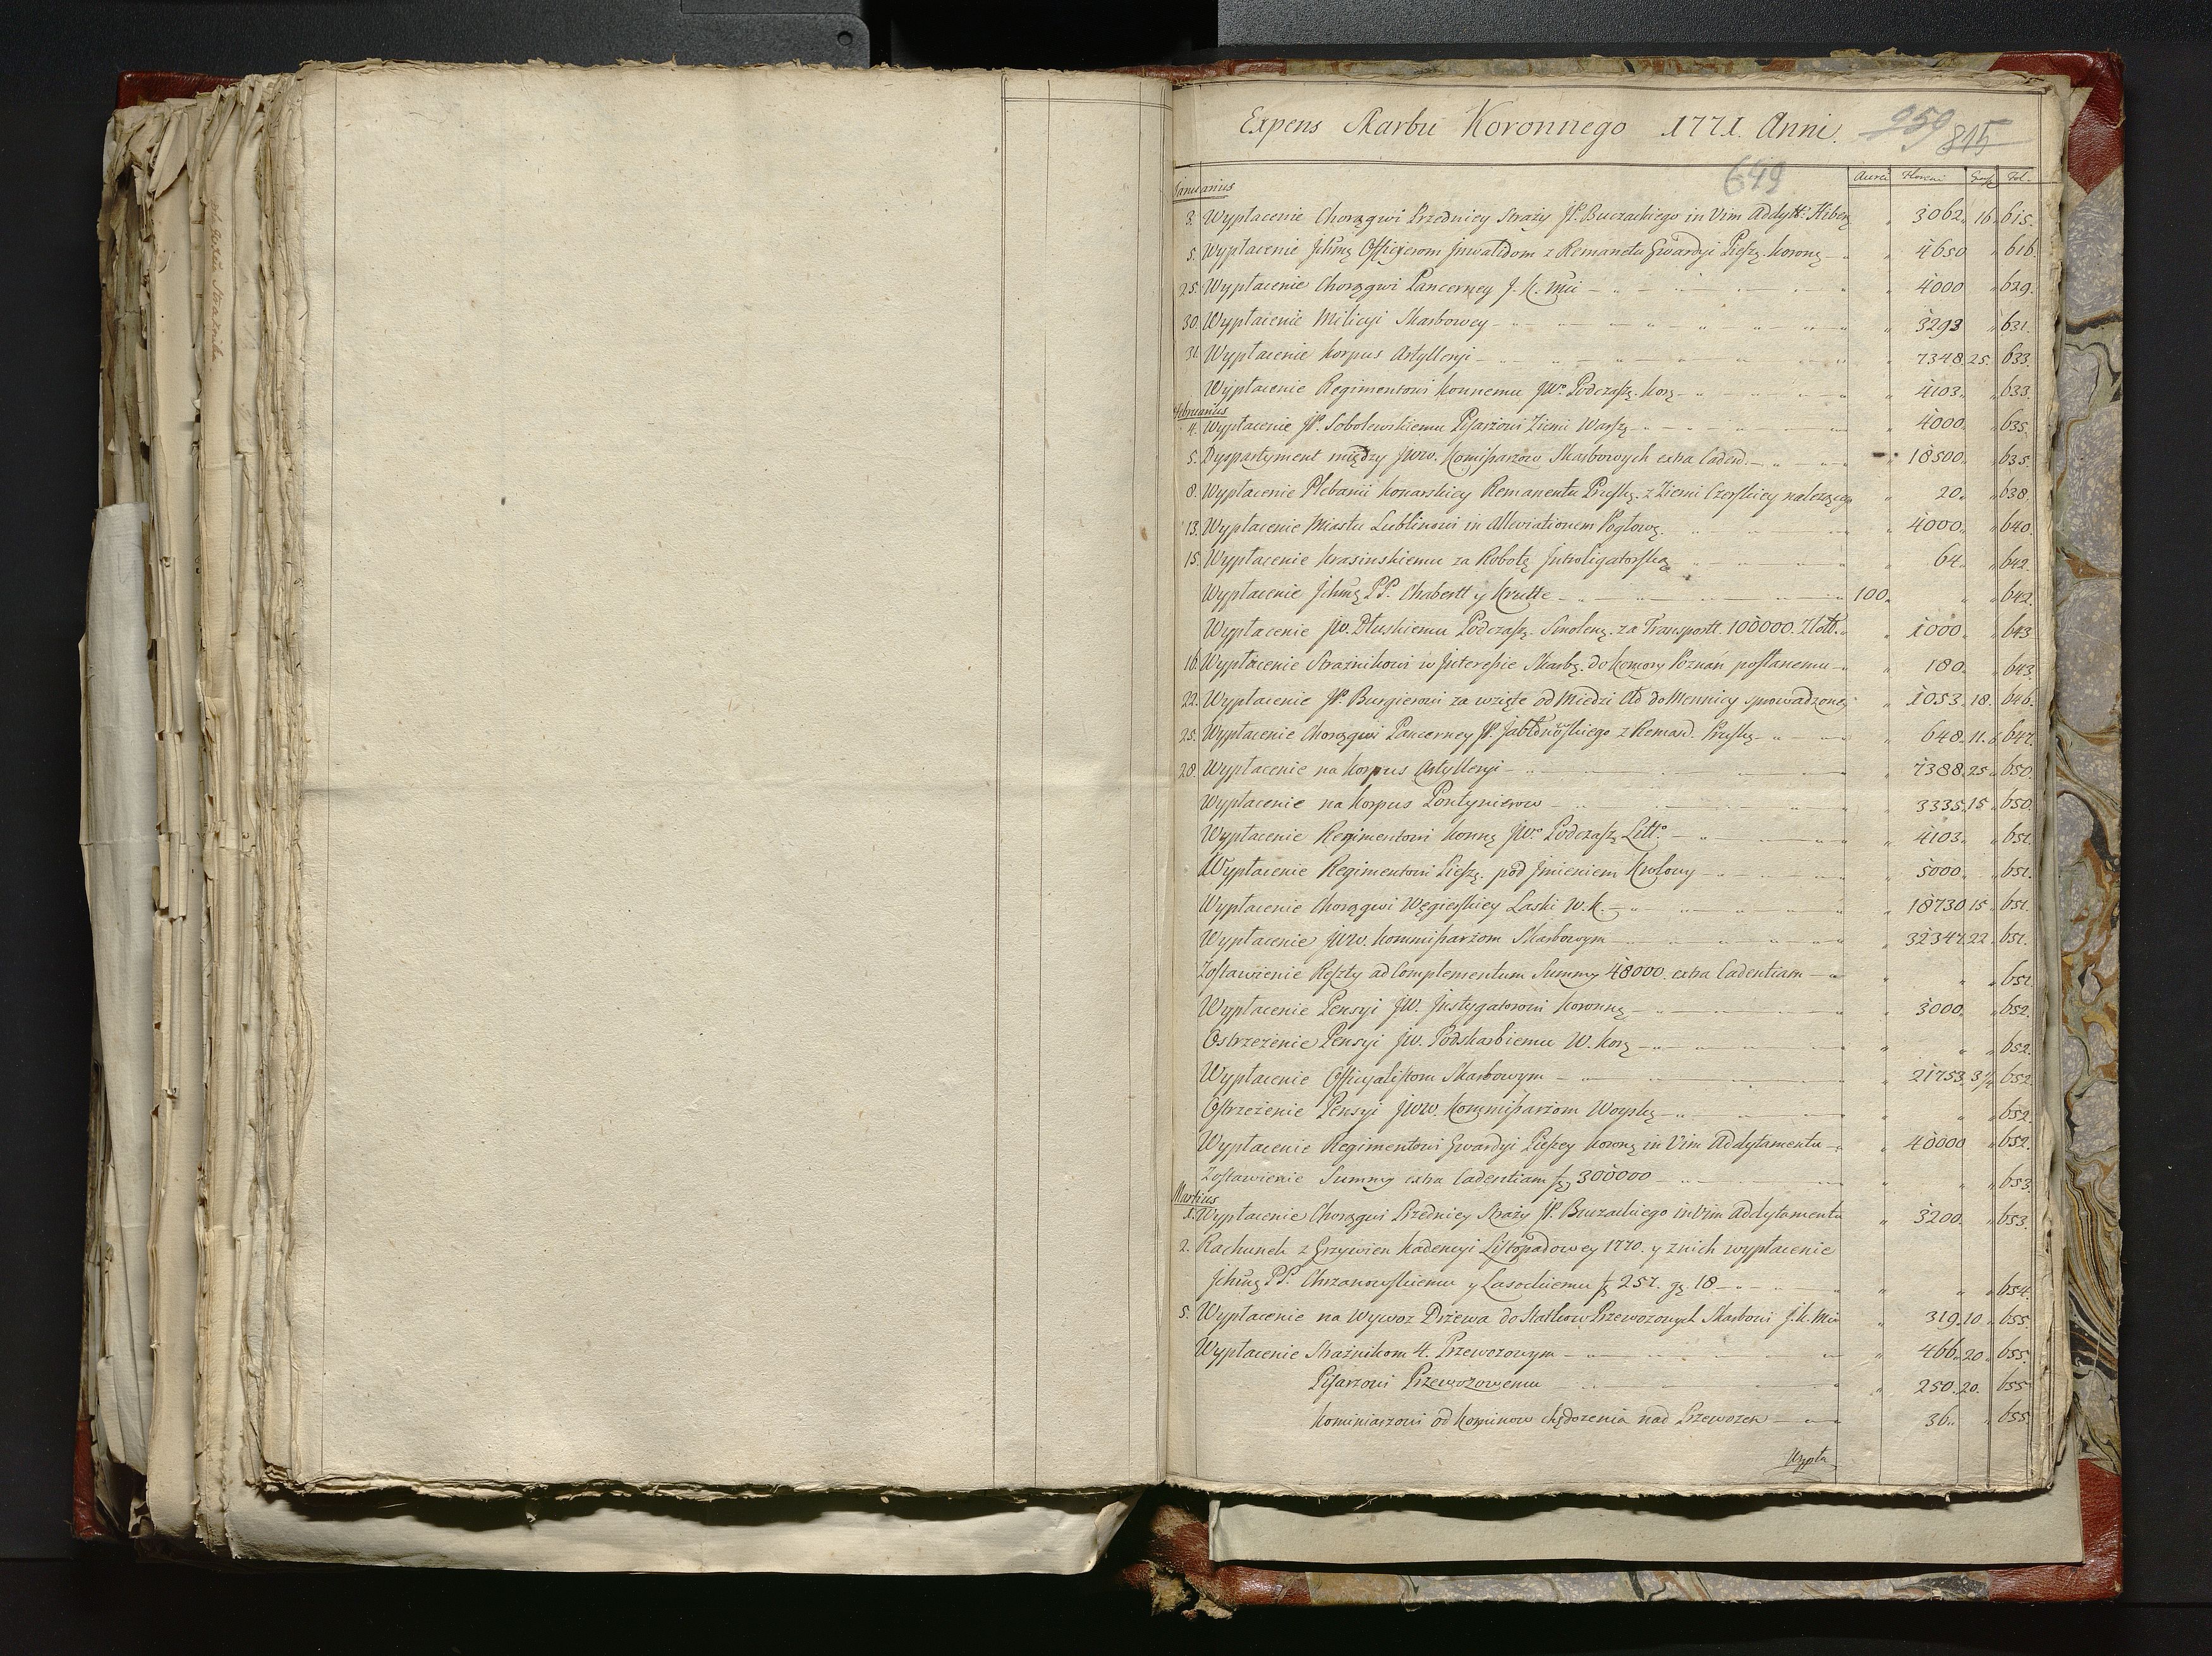 Expens Skarbu Koronnego 1771. Anni.
959 815
649
Januarius
Aurei Floreni Gross Fol.
3. Wypłacenie Chorągwi Przedniey Straży JP. Buczackiego in Vim Addytt: Hiber 3062. 16 615.
5. Wypłacenie Jchmę Officyerom Jnwalidom z Remanetu Gwardyi Pieszę. Koronę 4650 616.
25. Wypłacenie Chorągwi Pancerney J. K. Mci 4000 629.
30. Wypłacenie Milicyi Skarbowey 3293 631.
31. Wypłacenie Korpus Artylleryi 7348. 25. 633.
Wypłacenie Regimentowi Konnemu JWo. Podczaszę. Korę 4103. 633.
Februarius
4. Wypłacenie JP. Sobolewskiemu Pisarzowi Ziemi Warszę 4000. 635.
5. Dyspartyment między JWW. Komissarzow Skarbowych extra Cadend. 18500. 635.
8. Wypłacenie Plebanii Konarskiey Remanentu Pruskę. z Ziemi Czerskiey należącego 20. 638.
13. Wypłacenie Miastu Lublinowi in Alleviationem Pogłowę. 4000. 640.
15. Wypłacenie Krasinskiemu za Robotę Jntroligatorską 64. 642.
Wypłacenie Jchmę PP. Chabertt y Krutte 100. 642.
Wypłacenie JW. Dłuskiemu Podczaszę. Smolenę. za Transportt. 100000. Złott. 1000. 643
16. Wypłacenie Strażnikowi w Jnteressie Skarbę. do Komory Poznań posłanemu 180. 643
22. Wypłacenie JP. Burgierowi za wzięte od Miedzi Cło do Mennicy sprowadzoney 1053. 18. 646.
25. Wypłacenie Chorągwi Pancerney JP. Jabłonowskiego z Reman. Pruskę 648. 11. 647.
28. Wypłacenie na Korpus Artylleryi 7388. 25 650.
Wypłacenie na Korpus Pontynierow 3335. 15 650.
Wypłacenie Regimentowi Konnę JWo Podczaszę Litto 4103. 651.
Wypłacenie Regimentowi Pieszę. pod Jmieniem Krolowy 5000. 651.
Wypłacenie Chorągwi Węgierskiey Laski W. K. 18730 15 651.
Wypłacenie JWW. Kommissarzom Skarbowym 32347. 22. 651.
Zostawienie Reszty ad Complementum Summy 48000. extra Cadentiam 652.
Wypłacenie Pensyi JW. Jnstygatorowi Koronnę 3000. 652.
Ostrzeżenie Pensyi JW. Podskarbiemu W. Korę 652.
Wypłacenie Officyalistom Skarbowym 21753. 3 652.
Ostrzeżenie Pensyi JWW. Kommissarzom Woyskę 652.
Wypłacenie Regimentowi Gwardyi Pieszey Koronę in Vim Addytamentu 40000 652.
Zostawienie Summy extra Cadentiam fzł 300000 653.
Martius
1. Wypłacenie Chorągwi Przedniey Straży JP. Buczackiego in Vim Addytamentu 3200. 653.
2. Rachunek z Grzywien Kadencyi Listopadowey 1770. y z nich wypłacenie
Jchmę PP. Chrzanowskiemu y Lasockiemu fzł 257. gr. 18 654.
5. Wypłacenie na Wywoz Drzewa do Statkow Przewozowych Skarbowi J.K. Mci 319. 10 655.
Wypłacenie Strażnikom 4. Przewozowym 466. 20 655.
Pisarzowi Przewozowemu 250. 20. 655
Kominiarzowi od Kominow chędożenia nad Przewozem 36. 655
Wypła